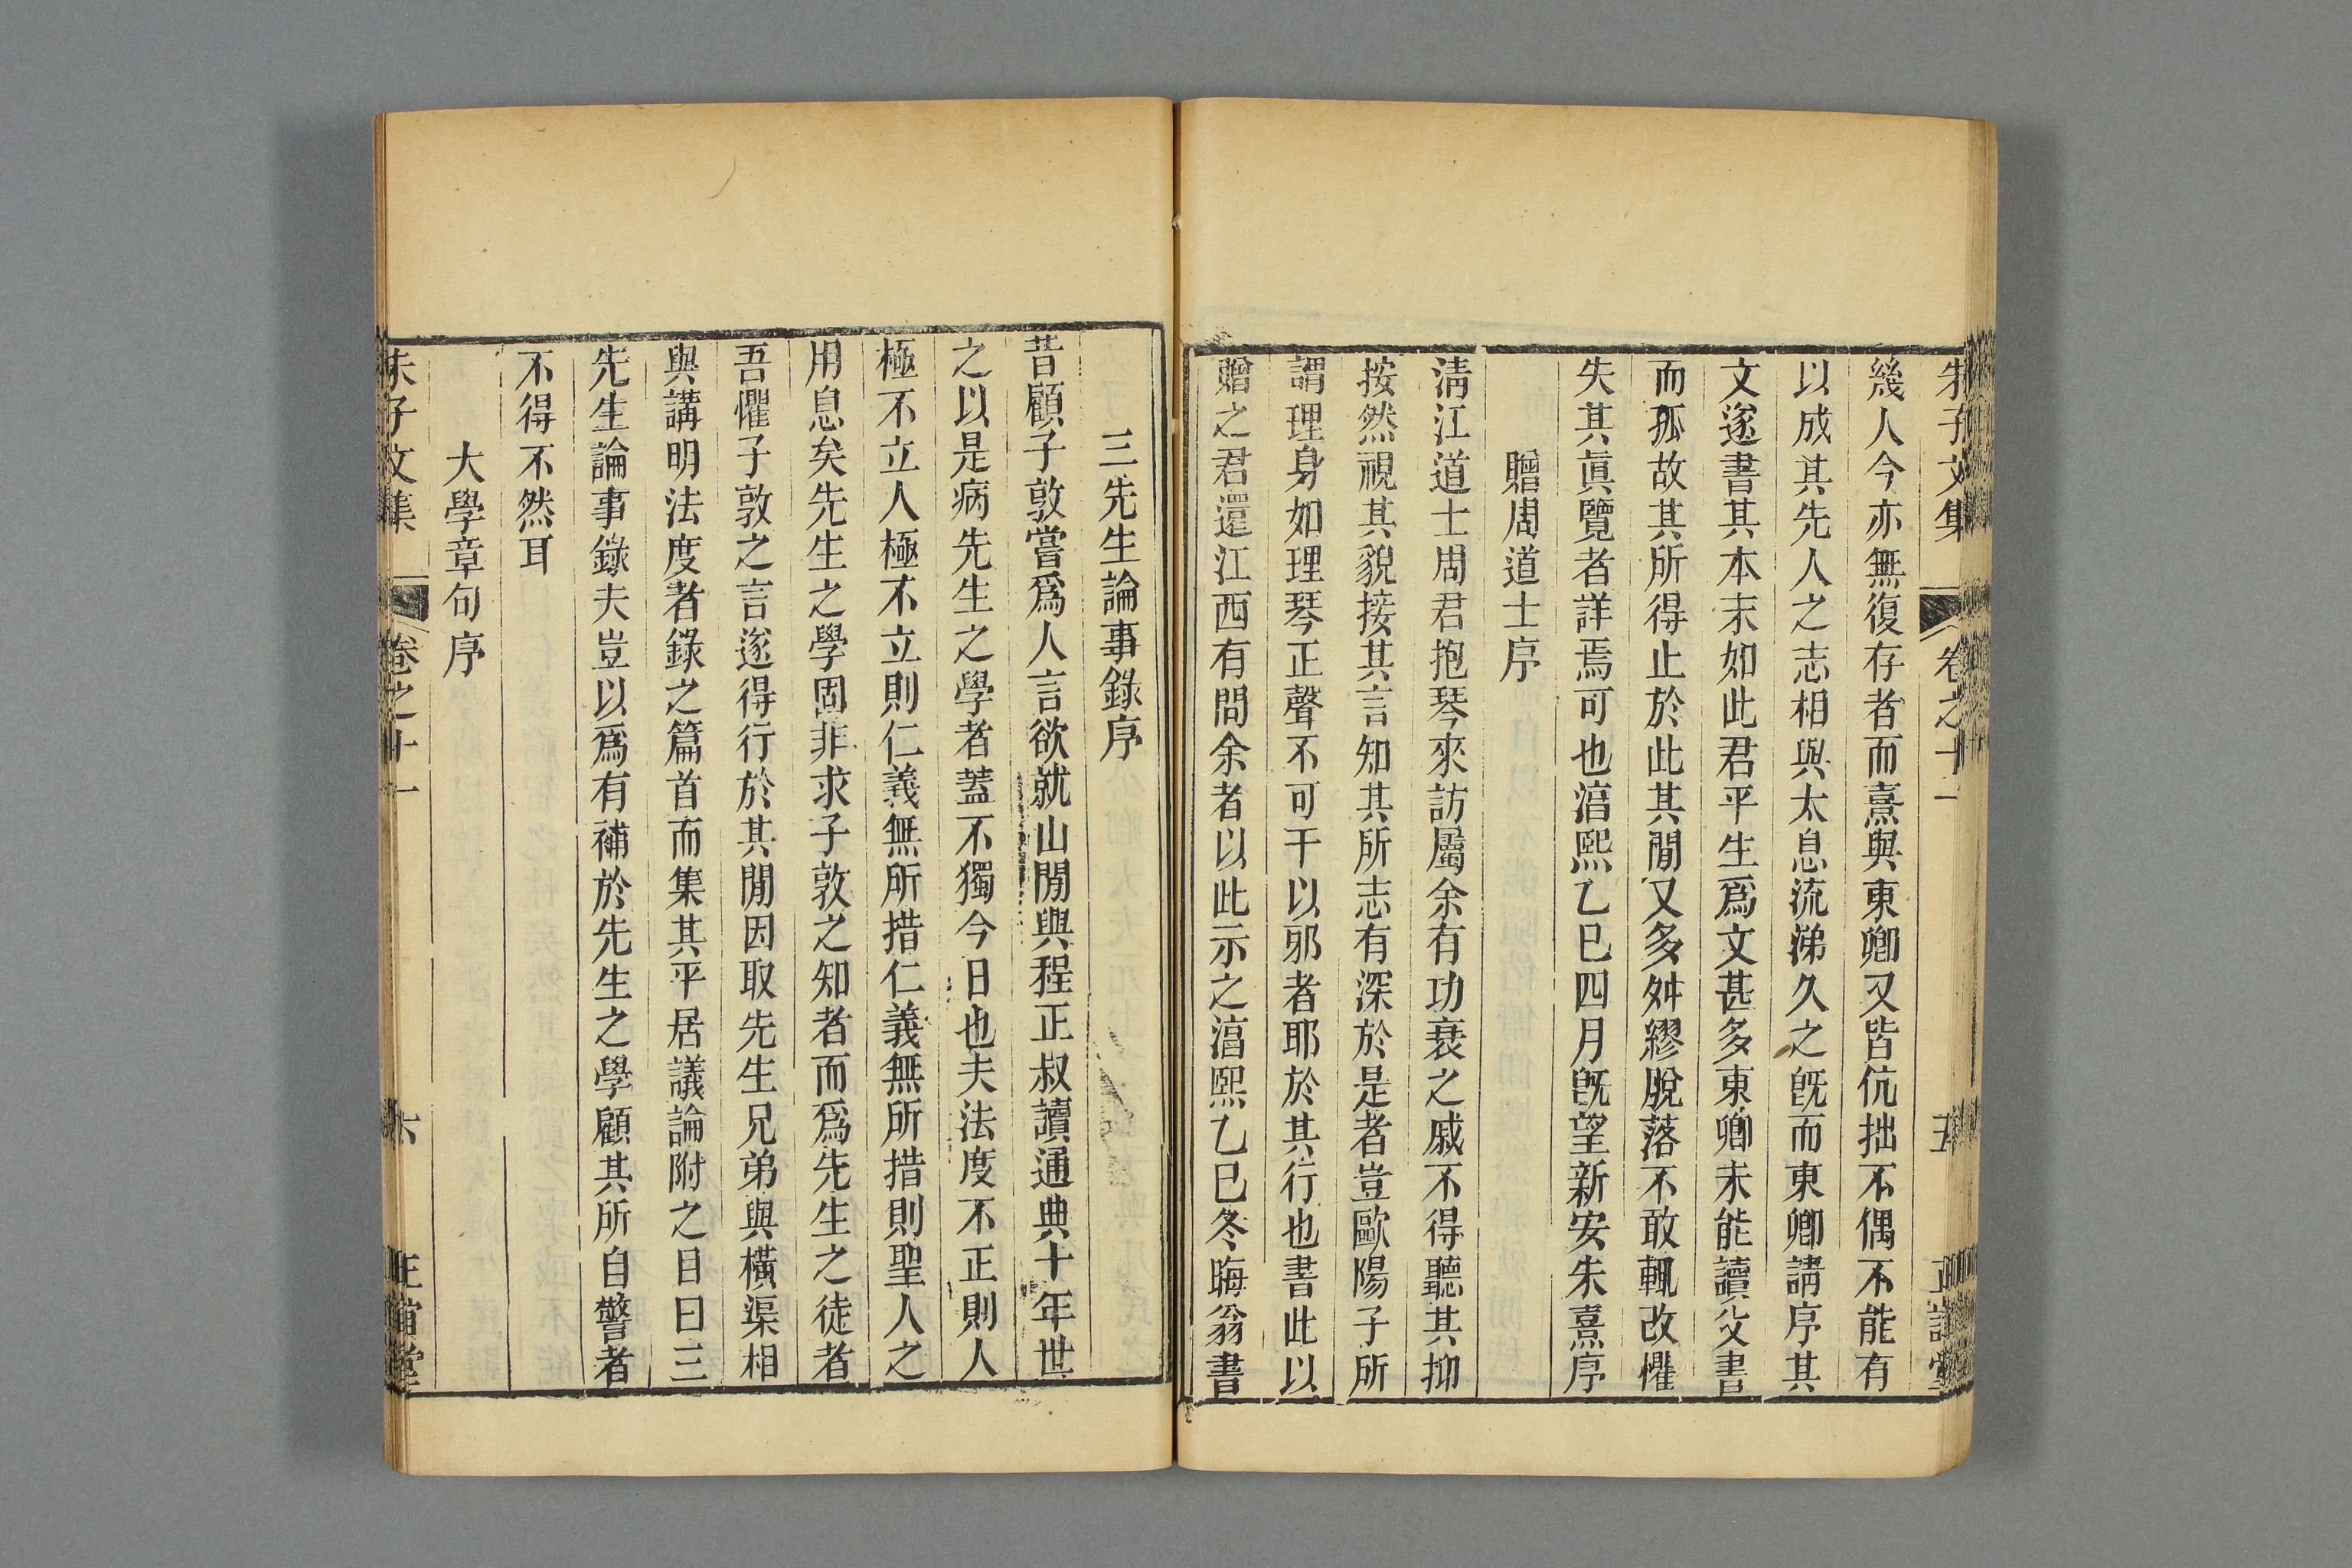 朱子文集 卷之十一 五 正誼堂
幾人今亦無復存者而熹與東卿又皆伉拙不偶不能有
以成其先人之志相與太息流涕久之旣而東卿請序其
文遂書其本末如此君平生爲文甚多東卿未能讀父書
而孤故其所得止於此其閒又多舛繆脫落不敢輒改懼
失其眞覽者詳焉可也淳熙乙巳四月旣望新安朱熹序
贈周道士序
淸江道士周君抱琴來訪屬余有功衰之戚不得聽其抑
按然視其貌接其言知其所志有深於是者豈歐陽子所
謂理身如理琴正聲不可干以邪者耶於其行也書此以
贈之君還江西有問余者以此示之淳熙乙巳冬晦翁書
三先生論事錄序
昔顧子敦嘗爲人言欲就山閒與程正叔讀通典十年世
之以是病先生之學者蓋不獨今日也夫法度不正則人
極不立人極不立則仁義無所措仁義無所措則聖人之
用息矣先生之學固非求子敦之知者而爲先生之徒者
吾懼子敦之言遂得行於其閒因取先生兄弟與橫渠相
與講明法度者錄之篇首而集其平居議論附之目曰三
先生論事錄夫豈以爲有補於先生之學顧其所自警者
不得不然耳
大學章句序
朱子文集 卷之十一 六 正誼堂